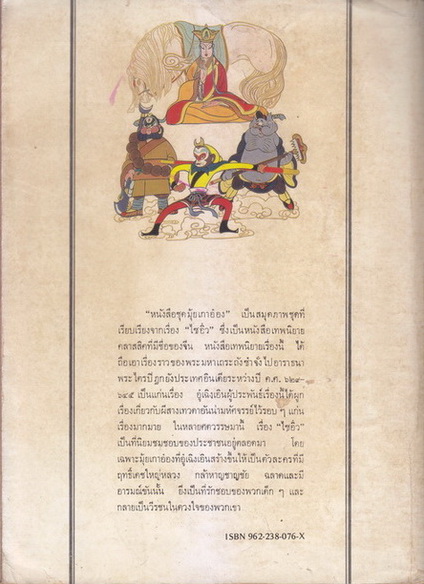 “หนังสือชุดมุ้ยเกาอ๋อง” เป็นสมุดภาพชุดที่
เรียบเรียงจากเรื่อง “ไซอิ๋ว” ซึ่งเป็นหนังสือเทพนิยาย
คลาสสิคที่มีชื่อของจีน หนังสือเทพนิยายเรื่องนี้ ได้
ถือเอาเรื่องราวของพระมหาเถระถังซำจั๋งไปอาราธนา
พระไตรปิฎกยังประเทศอินเดียระหว่างปี ค.ศ. ๖๒๙-
๖๔๕ เป็นแก่นเรื่อง อู๋เฉิงเอินผู้ประพันธ์เรื่องนี้ได้ผูก
เรื่องเกี่ยวกับผีสางเทวดาอันน่ามหัศจรรย์ไว้รอบ ๆ แก่น
เรื่องมากมาย ในหลายศตวรรษมานี้ เรื่อง “ไซอิ๋ว”
เป็นที่นิยมชมชอบของประชาชนอยู่ตลอดมา โดย
เฉพาะมุ้ยเกาอ๋องที่อู๋เฉิงเอินสร้างขึ้นให้เป็นตัวละครที่มี
ฤทธิ์เดชใหญ่หลวง กล้าหาญชาญชัย ฉลาดและมี
อารมณ์ขันนั้น ยิ่งเป็นที่รักชอบของพวกเด็ก ๆ และ
กลายเป็นวีรชนในดวงใจของพวกเขา
ISBN 962-238-076-X